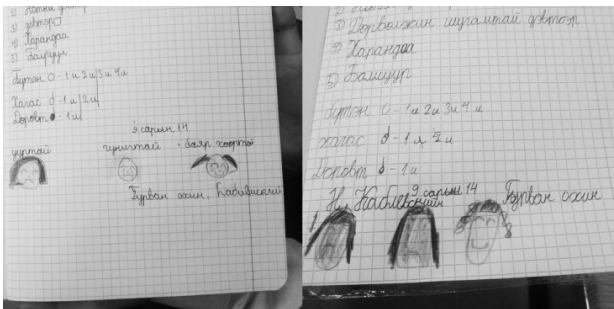 3) дэвтэр
4) Харандаа
5) Баллуур
Бүтэн 0 - 1 и 2 и 3 и 4 и
Хагас d - 1 и 2 и
Дөрөвт d - 1 и
9 сарын 14
ууртай гунигтай баяр хөөртэй
Гурван охин, Кабалевский
Дөрвөлжин шугамтай дэвтэр
Харандаа
5) Баллуур
бүтэн 0 - 1 и 2 и 3 и 4 и
хагас d - 1 и 2 и
Дөрөвт d - 1 и
9 сарын 14
Кабалевский Гурван охин